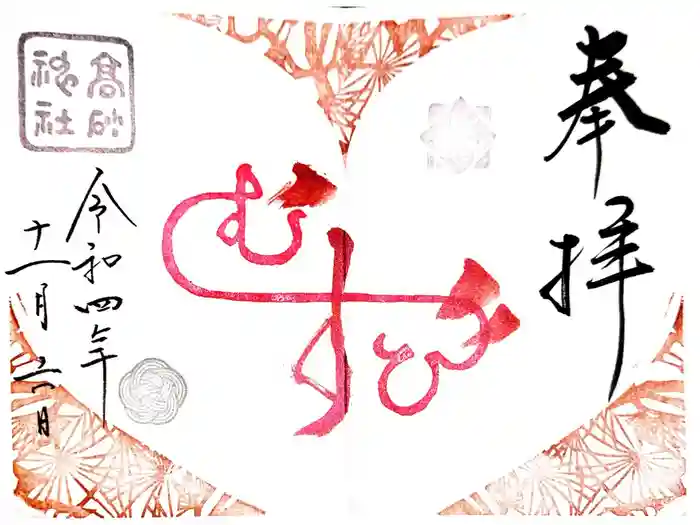 奉拝
むすび
高砂
神社
令和四年
十一月六日